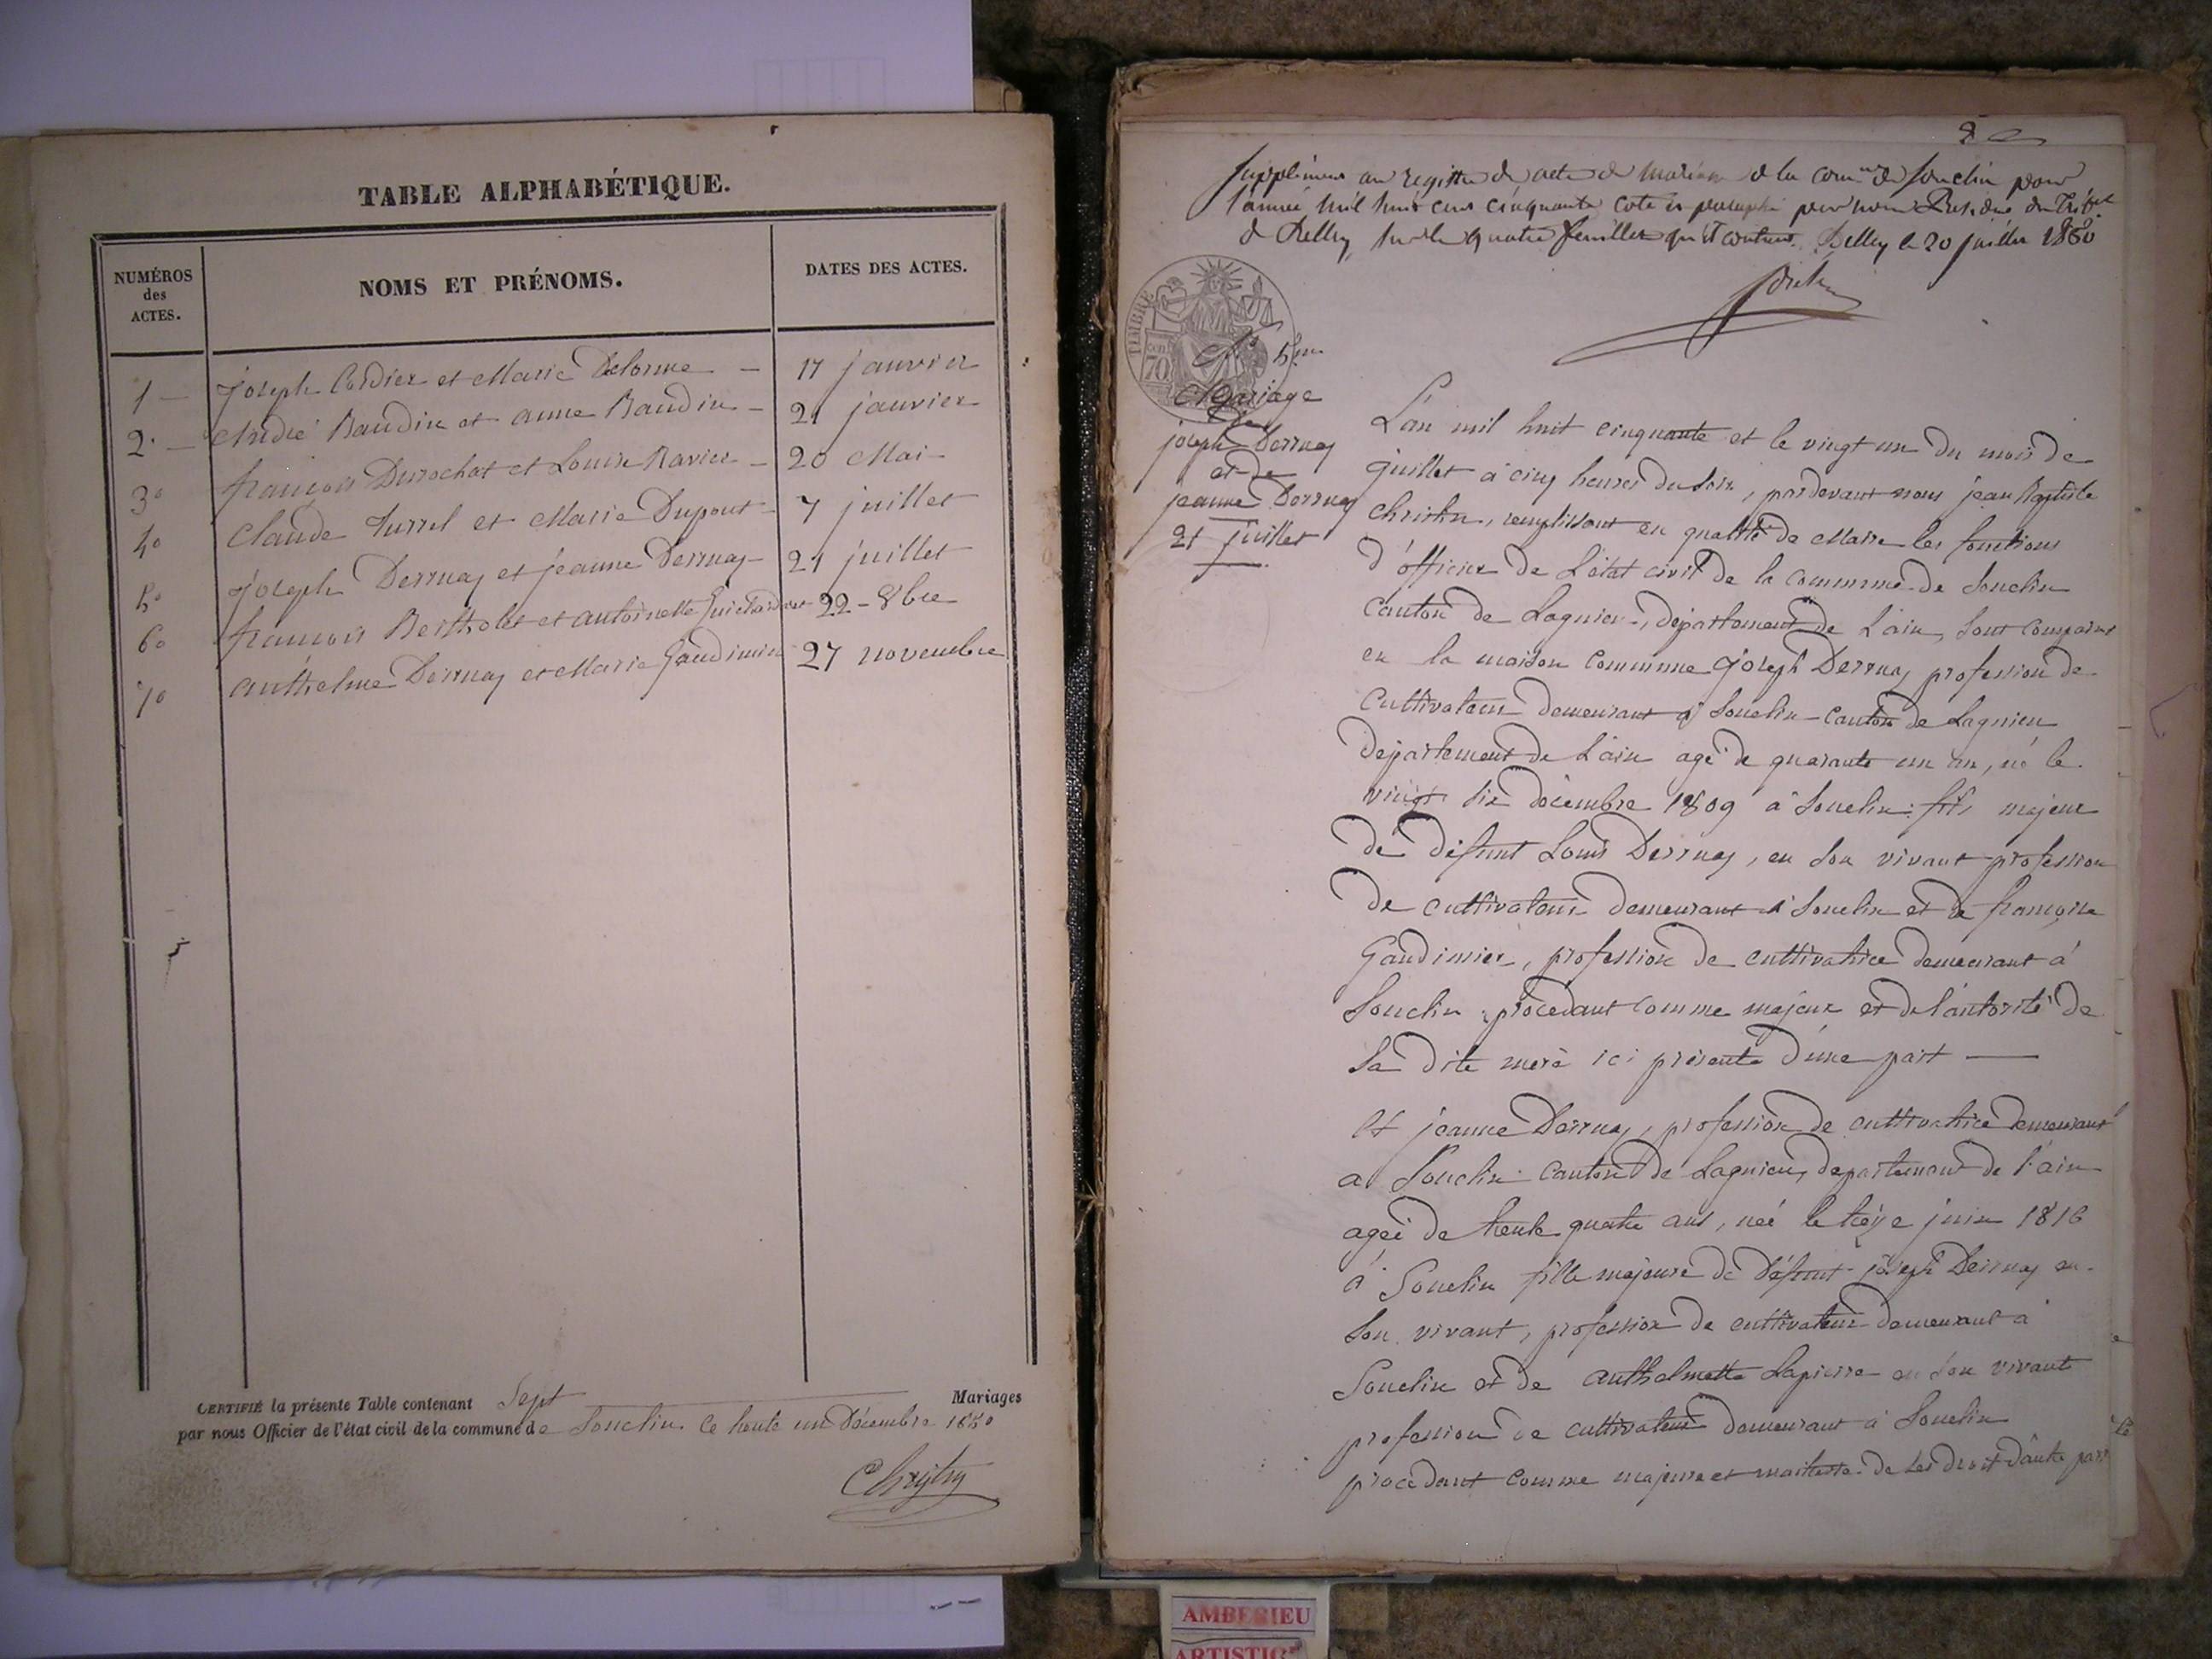 TABLE ALPHABÉTIQUE.
NUMÉROS
des
ACTES.
NOMS ET PRÉNOMS.
DATES DES ACTES.
1 — joseph Cordier et Marie Delorme — 17 janvier
2° — André Baudin et anne Baudin — 21 janvier
3° françois Durochat et Louise Ravier — 20 Mai
4° Claude Turrel et Marie Dupont 7 juillet
5° joseph Derruaz et jeanne Derruaz — 21 juillet
6° françois Bertholet et antoinette 22 - 8bre
7° anthelme Derruaz et Marie Gaudimier 27 novembre
CERTIFIÉ la présente Table contenant Sept Mariages
par nous Officier de l'état civil de la commune de Souclin ce trente un Décembre 1850
Christin
Supplément au registre de actes de mariage de la comne de Souclin pour
l'année mil huit cent cinquante coté et paraphé par nous Président du Tribal
de Belley, sur les quatre feuillets qu'il contient. Belley le 20 juillet 1850
TIMBRE
70
N° 5
Mariage
De
joseph Derruaz
et de
jeanne Derruaz
21 juillet
L'an mil huit cinquante et le vingt un du mois de
juillet à cinq heures du soir, pardevant nous jean Baptiste
Christin, remplissant en qualité de Maire les fonctions
d'officier de l'état civil de la commune de Souclin
Canton de Lagnieu, département de L'ain, sont comparus
en la maison commune joseph Derruaz profession de
Cultivateur demeurant à Souclin canton de Lagnieu
Département de L'ain agé de quarante un an, né le
vingt six décembre 1809 à Souclin fils majeur
de défunt Louis Derruaz, en son vivant profession
de cultivateur demeurant à Souclin et de françoise
Gaudimier, profession de cultivatrice demeurant à
Souclin procédant comme majeur et de l'autorité de
Sa dite mère ici présente d'une part —
Et jeanne Derruaz, profession de cultivatrice demeurant
à Souclin canton de Lagnieu, département de l'ain
agée de trente quatre ans, née le treize juin 1816
à Souclin fille majeure de défunt joseph Derruaz en
son vivant, profession de cultivateur demeurant à
Souclin et de anthelmette Lapierre en son vivant
profession de cultivateur demeurant à Souclin
procédant comme majeure et maitresse de ses droit d'autre part
AMBERIEU
ARTISTIC